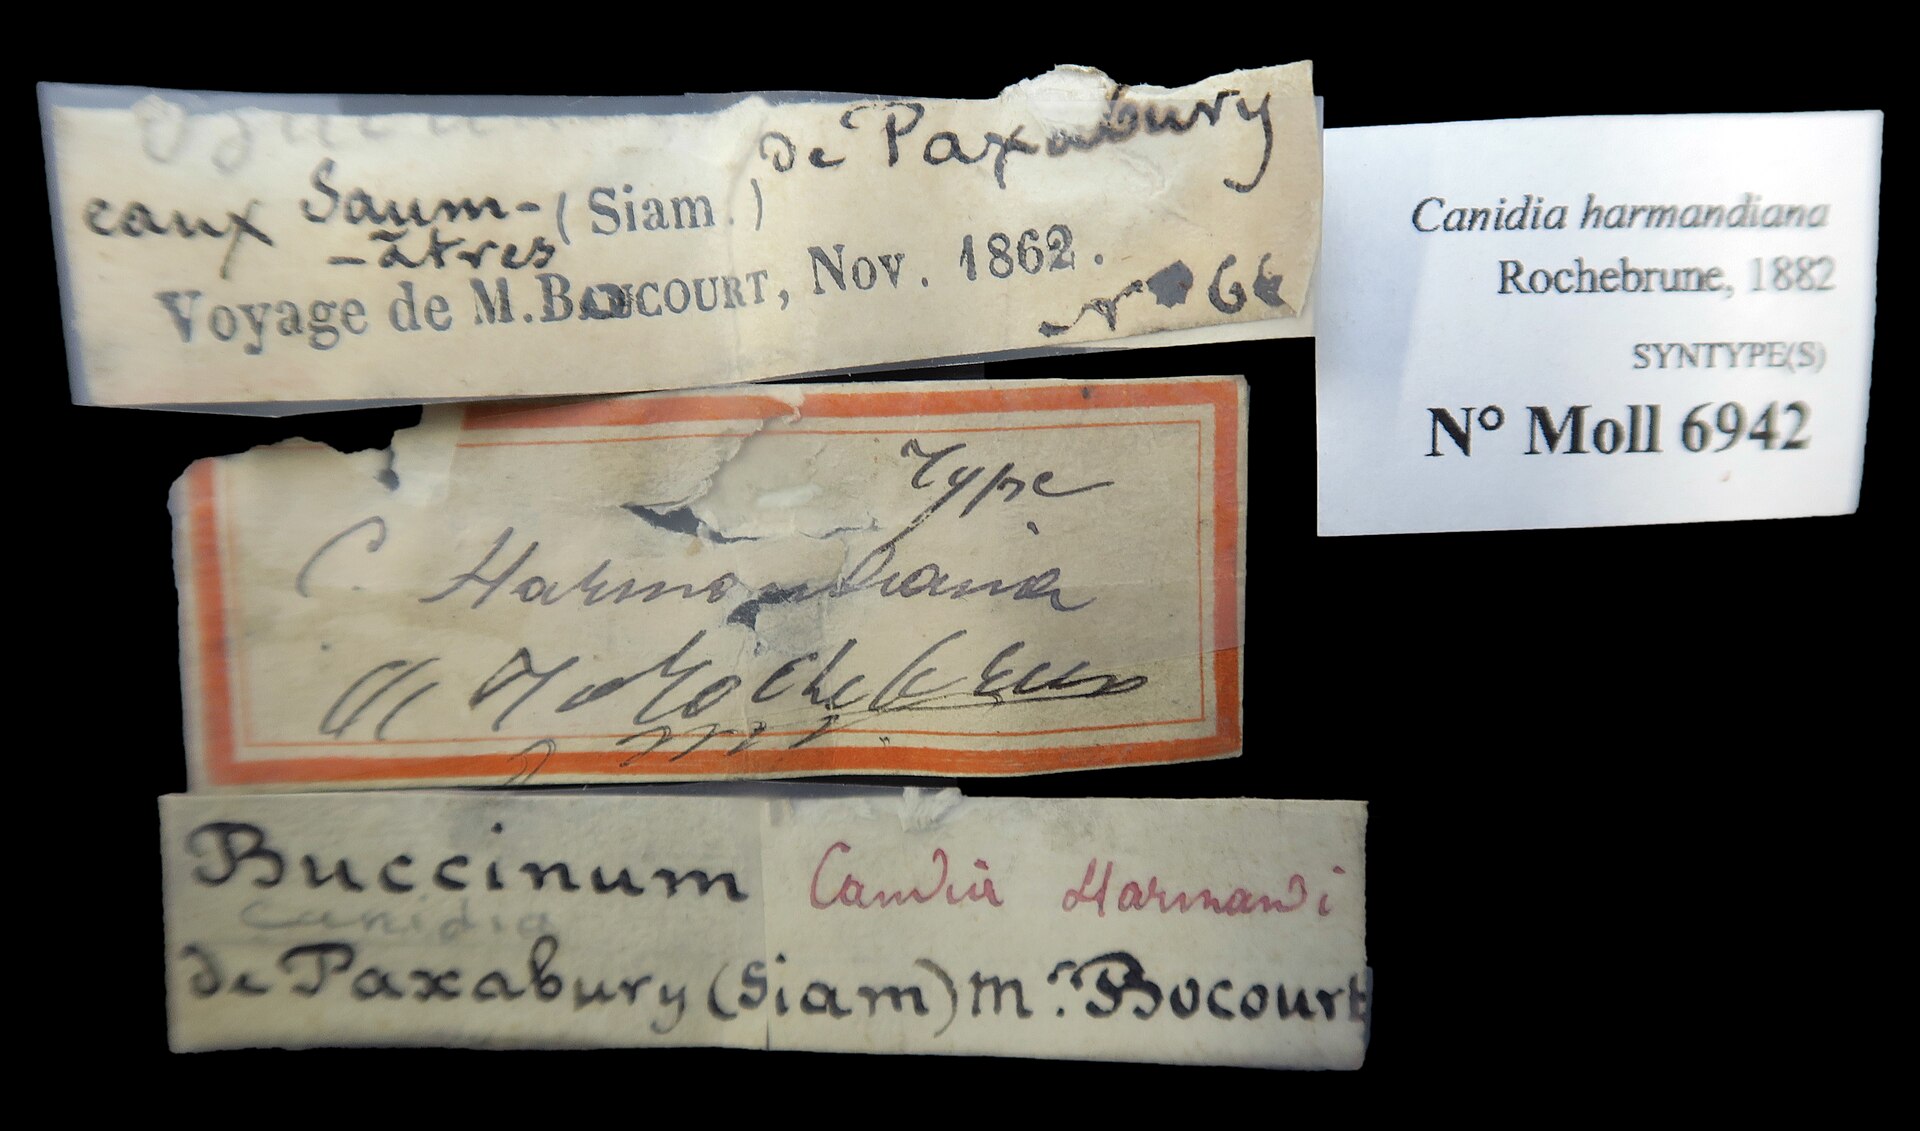 de Paxabury
eaux Saum- (Siam.)
-âtres
Voyage de M. BOUCOURT, Nov. 1862.
Type
C. Harmandiana
Rochebrune
Buccinum Candia Harmandi
Canidia
de Paxabury (Siam) Mr. Bocourt
Canidia harmandiana
Rochebrune, 1882
SYNTYPE(S)
N° Moll 6942